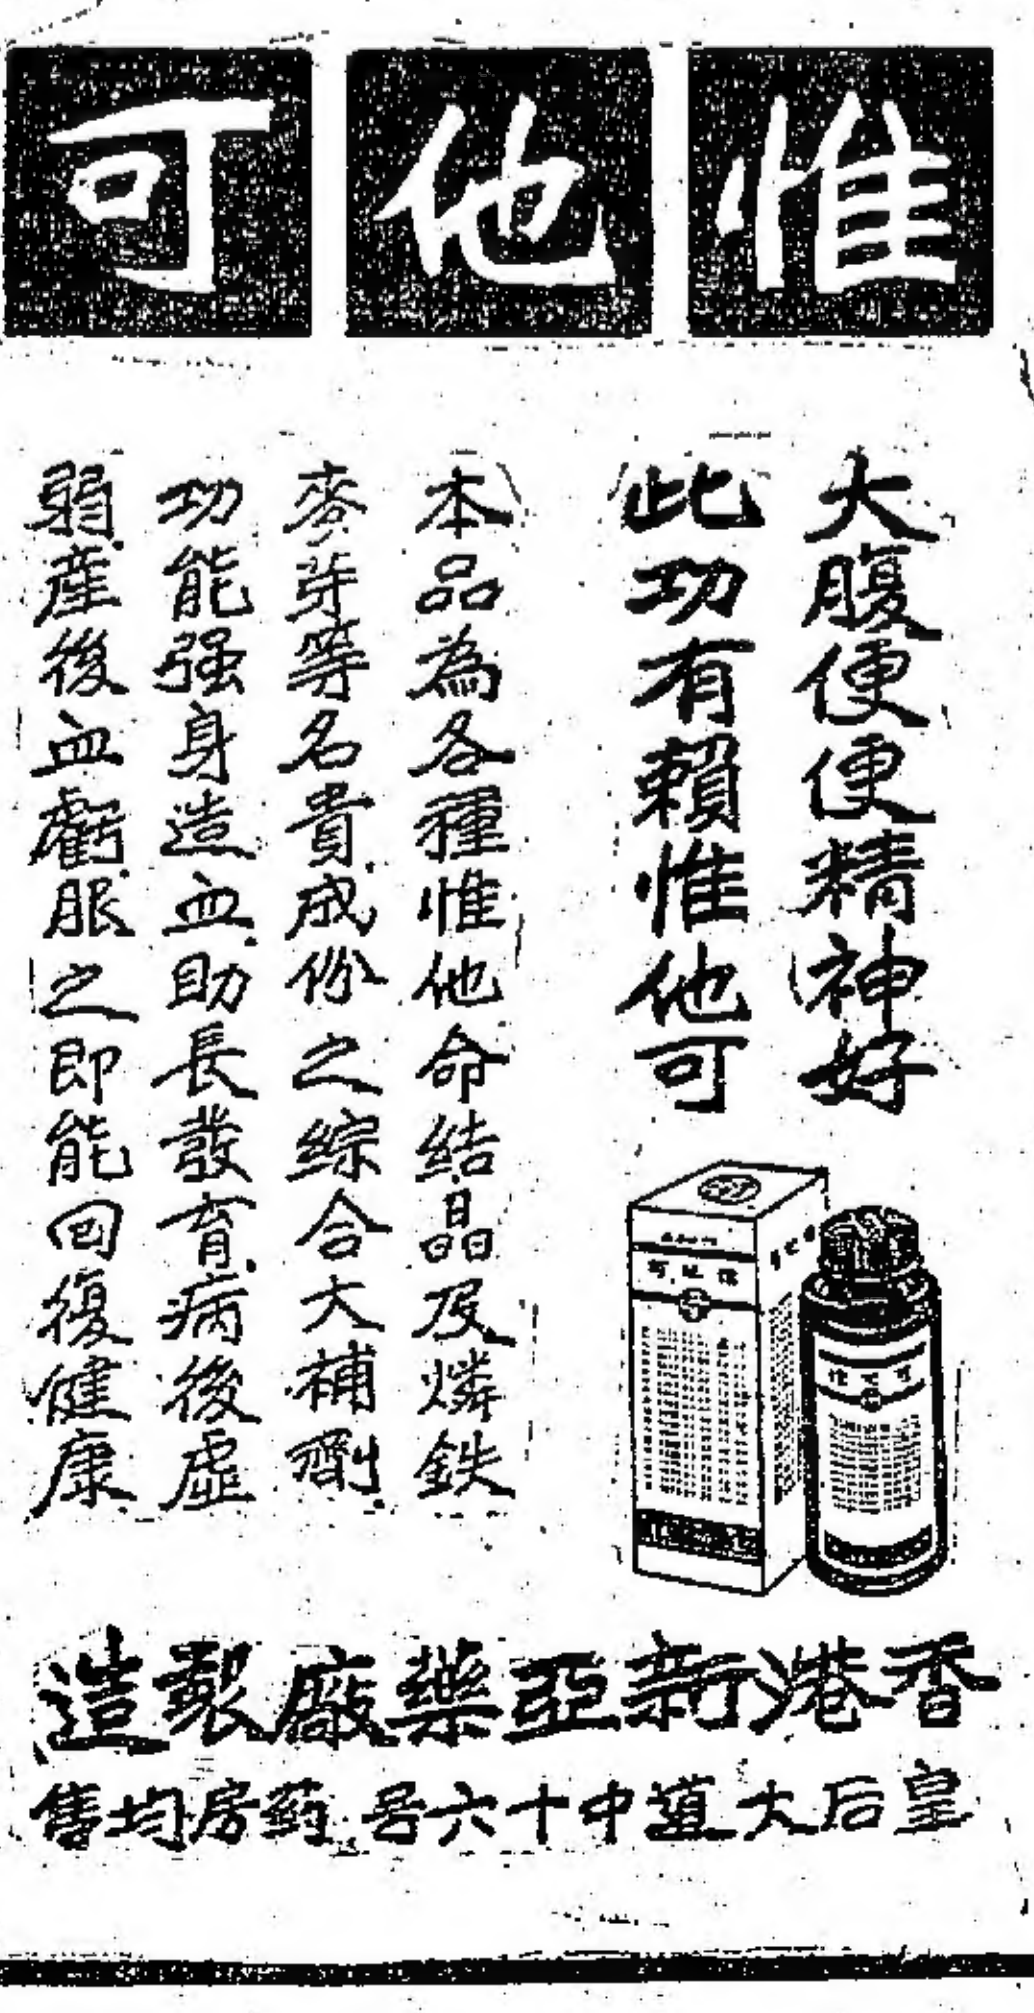 惟他可
大腹便便精神好
此功有賴惟他可
本品為各種惟他命結晶及燐鉄
麥芽等名貴成份之綜合大補劑
功能强身造血助長發育病後虛
弱產後血虧服之即能回復健康
香港新亞藥廠製造
皇后大道中十六号 葯房均售